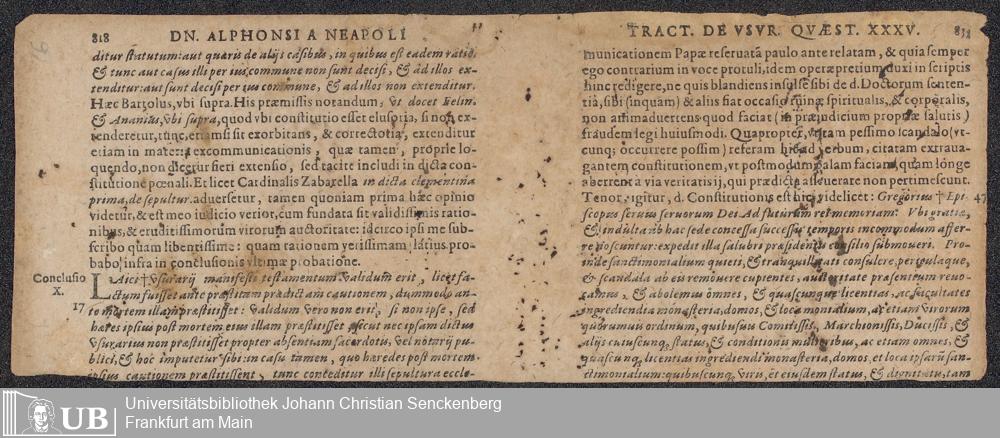 818 DN. ALPHONSI A NEAPOLI
ditur statutum: aut quæris de alijs casibus, in quibus est eadem ratio,
& tunc aut casus illi per ius commune non sunt decisi, & ad illos ex-
tenditur: aut sunt decisi per ius commune, & ad illos non extenditur.
Hæc Bartolus, vbi supra. His præmissis notandum, vt docet Felin.
& Ananius, vbi supra, quod vbi constitutio esset elusoria, si non ex-
tenderetur, tũc, etiamsi sit exorbitans, & correctoria, extenditur
etiam in materia excommunicationis, quæ tamen, proprie lo-
quendo, non dicetur fieri extensio, sed tacite includi in dicta con-
stitutione pœnali. Et licet Cardinalis Zabarella in dicta clementina
prima, de sepultur. aduersetur, tamen quoniam prima hæc opinio
videtur, & est meo iudicio verior, cum fundata sit validissimis ratio-
nibus, & eruditissimorum virorum auctoritate: idcirco ipsi me sub-
scribo quam libentissime: quam rationem verissimam latius pro-
babo, infra in conclusionis vltimæ probatione.
Conclusio
X.
17
LAici † vsurarij manifesti testamentum validum erit, licet fa-
ctum fuisset ante præstitam prædictam cautionem, dummodo an-
te mortem illam præstitisset: validum vero non erit, si non ipse, sed
hæres ipsius post mortem eius illam præstitisset sicut nec ipsam dictus
vsurarius non præstitisset propter absentiam sacerdotis, vel notarij pu-
blici, & hoc imputetur sibi: in casu tamen, quo hæredes post mortem
ipsius cautionem præstitissent, tunc conceditur illi sepultura eccle-
TRACT. DE VSVR. QVÆST. XXXV.
municationem Papæ reseruatã paulo ante relatam, & quia semper
ego contrarium in voce protuli, idem operæpretium duxi in scriptis
hinc redigere, ne quis blandiens insulse sibi de d. Doctorum senten-
tiâ, sibi (inquam) & aliis fiat occasio ruinæ spiritualis, & corporalis,
non animaduertens quod faciat (in præiudicium propriæ salutis)
fraudem legi huiusmodi. Quapropter, vt tam pessimo scandalo (vt-
cunq; occurrere possim) referam hic ad verbum, citatam extraua-
gantem constitutionem, vt postmodum palam faciam, quam longe
aberrent a via veritatis ij, qui prædicta asseuerare non pertimescunt.
Tenor igitur, d. Constitutionis est hic, videlicet: Gregorius † Epi- 47
scopus seruus seruorum Dei. Ad futuram rei memoriam. Vbi gratiæ,
& indulta ab hac sede concessa successu temporis incommodum affer-
re noscuntur: expedit illa salubri præsidentis consilio submoueri. Pro-
inde sanctimonialium quieti, & tranquillitati consulere, pervulaque,
& scandala ab eis remouere cupientes, auctoritate præsentem reuo-
camus, & abolemus omnes, & quascunque licentias, ac facultates
ingrediendi a monasteria, domos, & loca monialium, ac etiam virorum
quorumuis ordinum, quibusuis Comitissis, Marchionissis, Ducissis, &
alijs cuiuscunq; status, & conditionis mulieribus, ac etiam omnes, &
quascunq; licentias ingrediendi monasteria, domos, et loca ipsarũ san-
ctimonialium: quibuscunq; viris, et eiusdem status, & dignitatis, tam
Universitätsbibliothek Johann Christian Senckenberg
Frankfurt am Main
UB